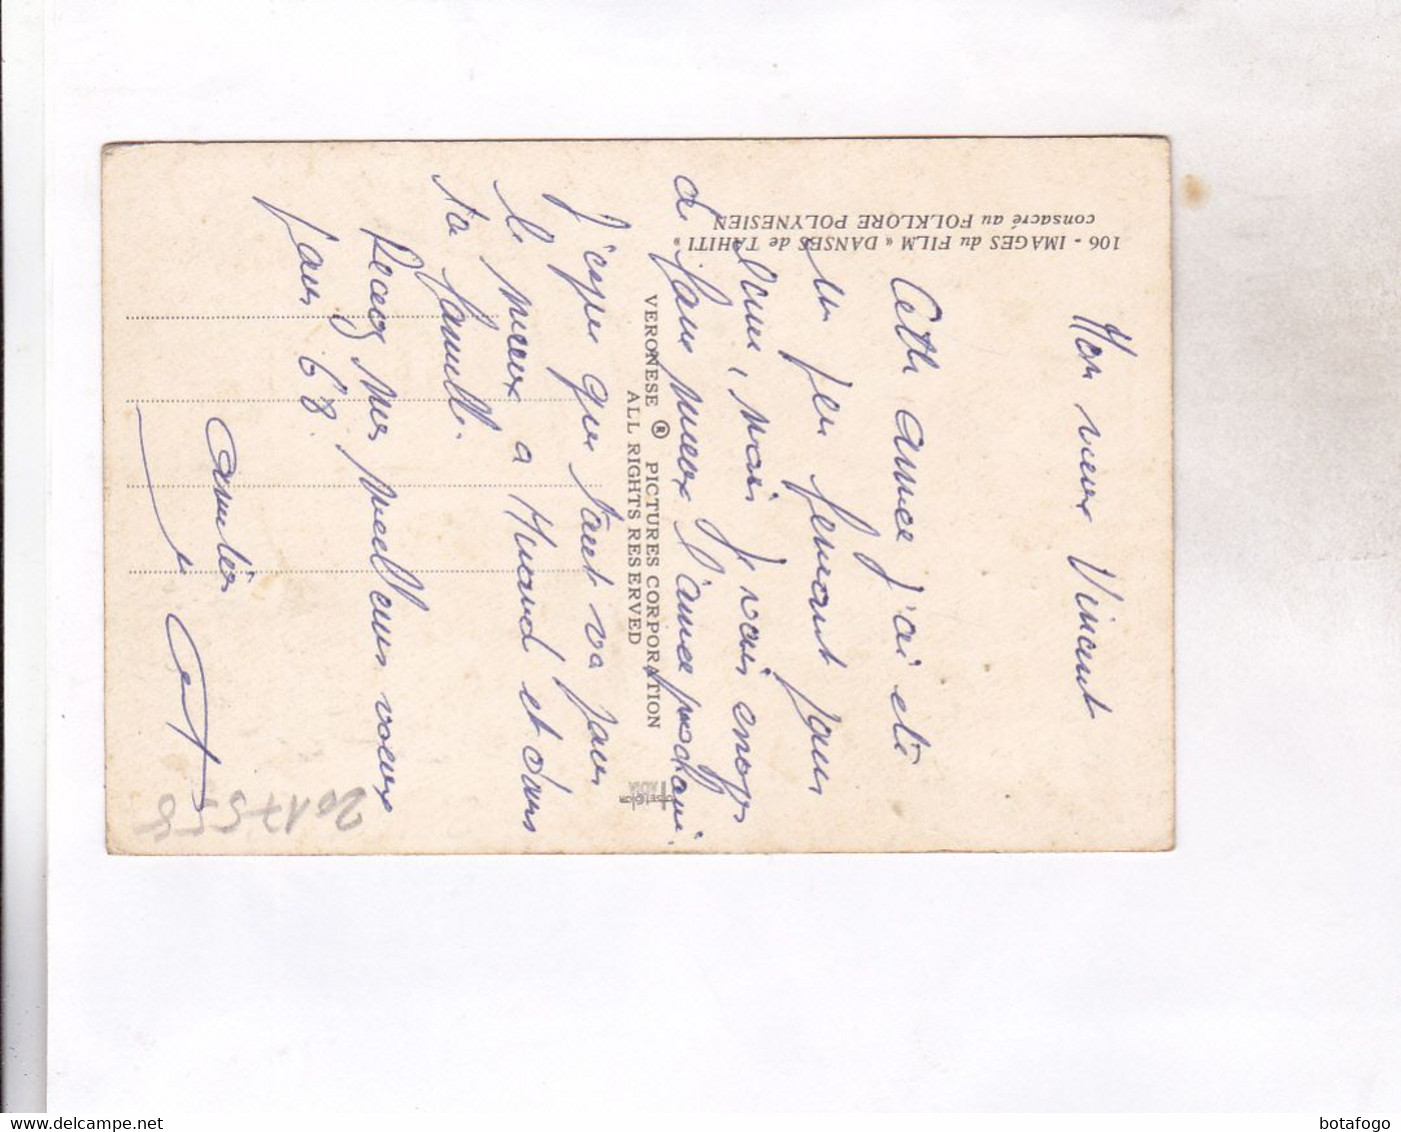 106 - IMAGES du FILM « DANSES de TAHITI »
consacré au FOLKLORE POLYNESIEN
VERONESE ® PICTURES CORPORATION
ALL RIGHTS RESERVED
Mon vieux Vincent
Cette année j'ai été
un peu feignant pour
mais je vais essayer
de faire mieux l'année prochaine.
J'espère que tout va pour
le mieux a et dans
ta famille.
Recevez mes meilleurs voeux
pour 68.
Amitiés
2017558
botafogo